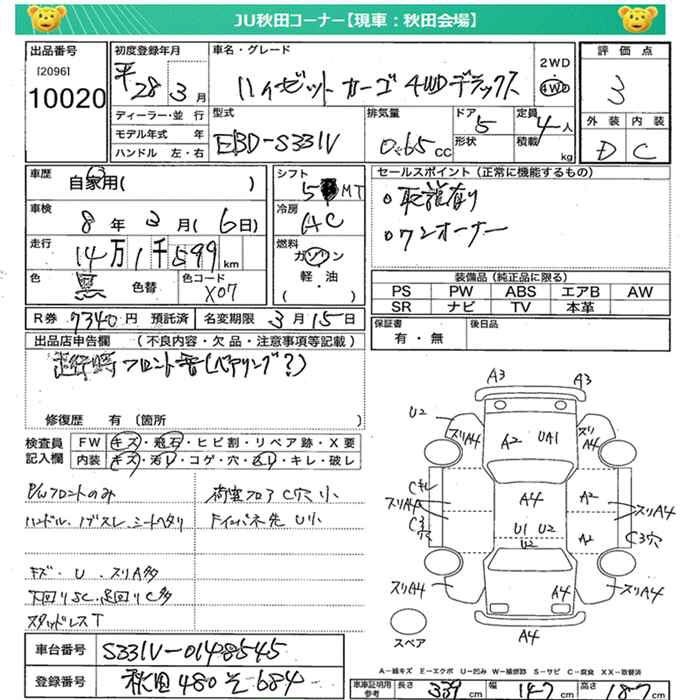 JU秋田コーナー【現車：秋田会場】
出品番号 初度登録年月 車名・グレード 評価点
[2096]
10020
平28年3月 ハイゼットカーゴ 4WDデラックス 2WD 4WD 3
ディーラー・並行 型式 排気量 ドア 5 定員 4人 外装 内装
モデル年式 年 EBD-S331V 0.65cc 形状 積載 kg D C
ハンドル 左・右
車歴 自家用( ) シフト 5 MT セールスポイント（正常に機能するもの）
○取説有り
車検 8年3月(6日) 冷房 AC ○ワンオーナー
走行 14万1千599km 燃料 ガソリン
軽・油
( )
色 黒 色替 色コード X07
装備品（純正品に限る）
PS PW ABS エアB AW
SR ナビ TV 本革
R券 7340円 預託済 名変期限 3月15日 保証書 有・無 後日品
出品店申告欄（不良内容・欠品・注意事項等記載）
走行時フロント音(ベアリング?)
修復歴 有（箇所 ）
検査員記入欄 FW キズ・飛石・ヒビ割・リペア跡・X要
内装 キズ・汚レ・コゲ・穴・キレ・破レ
P/Wフロントのみ 荷室フロア C穴小
ハンドル、シートヘタリ U小
キズ・U・スリA多
下回りSC、足回りC多
スタッドレスT
A3 A3
U2 スリA4 A2 UA1 スリA4
Cキレ スリA4 A4 A2 スリA4
C3穴 U1 U2 A2 C3穴
U2
スリA4 A4 スリA4
A4
スペア
A－線キズ E－エクボ U－凹み W－補修跡 S－サビ C－腐食 XX－取替済
車台番号 S331V-0148545
登録番号 秋田480そ684 車車証明用参考 長さ339cm 幅147cm 高さ187cm